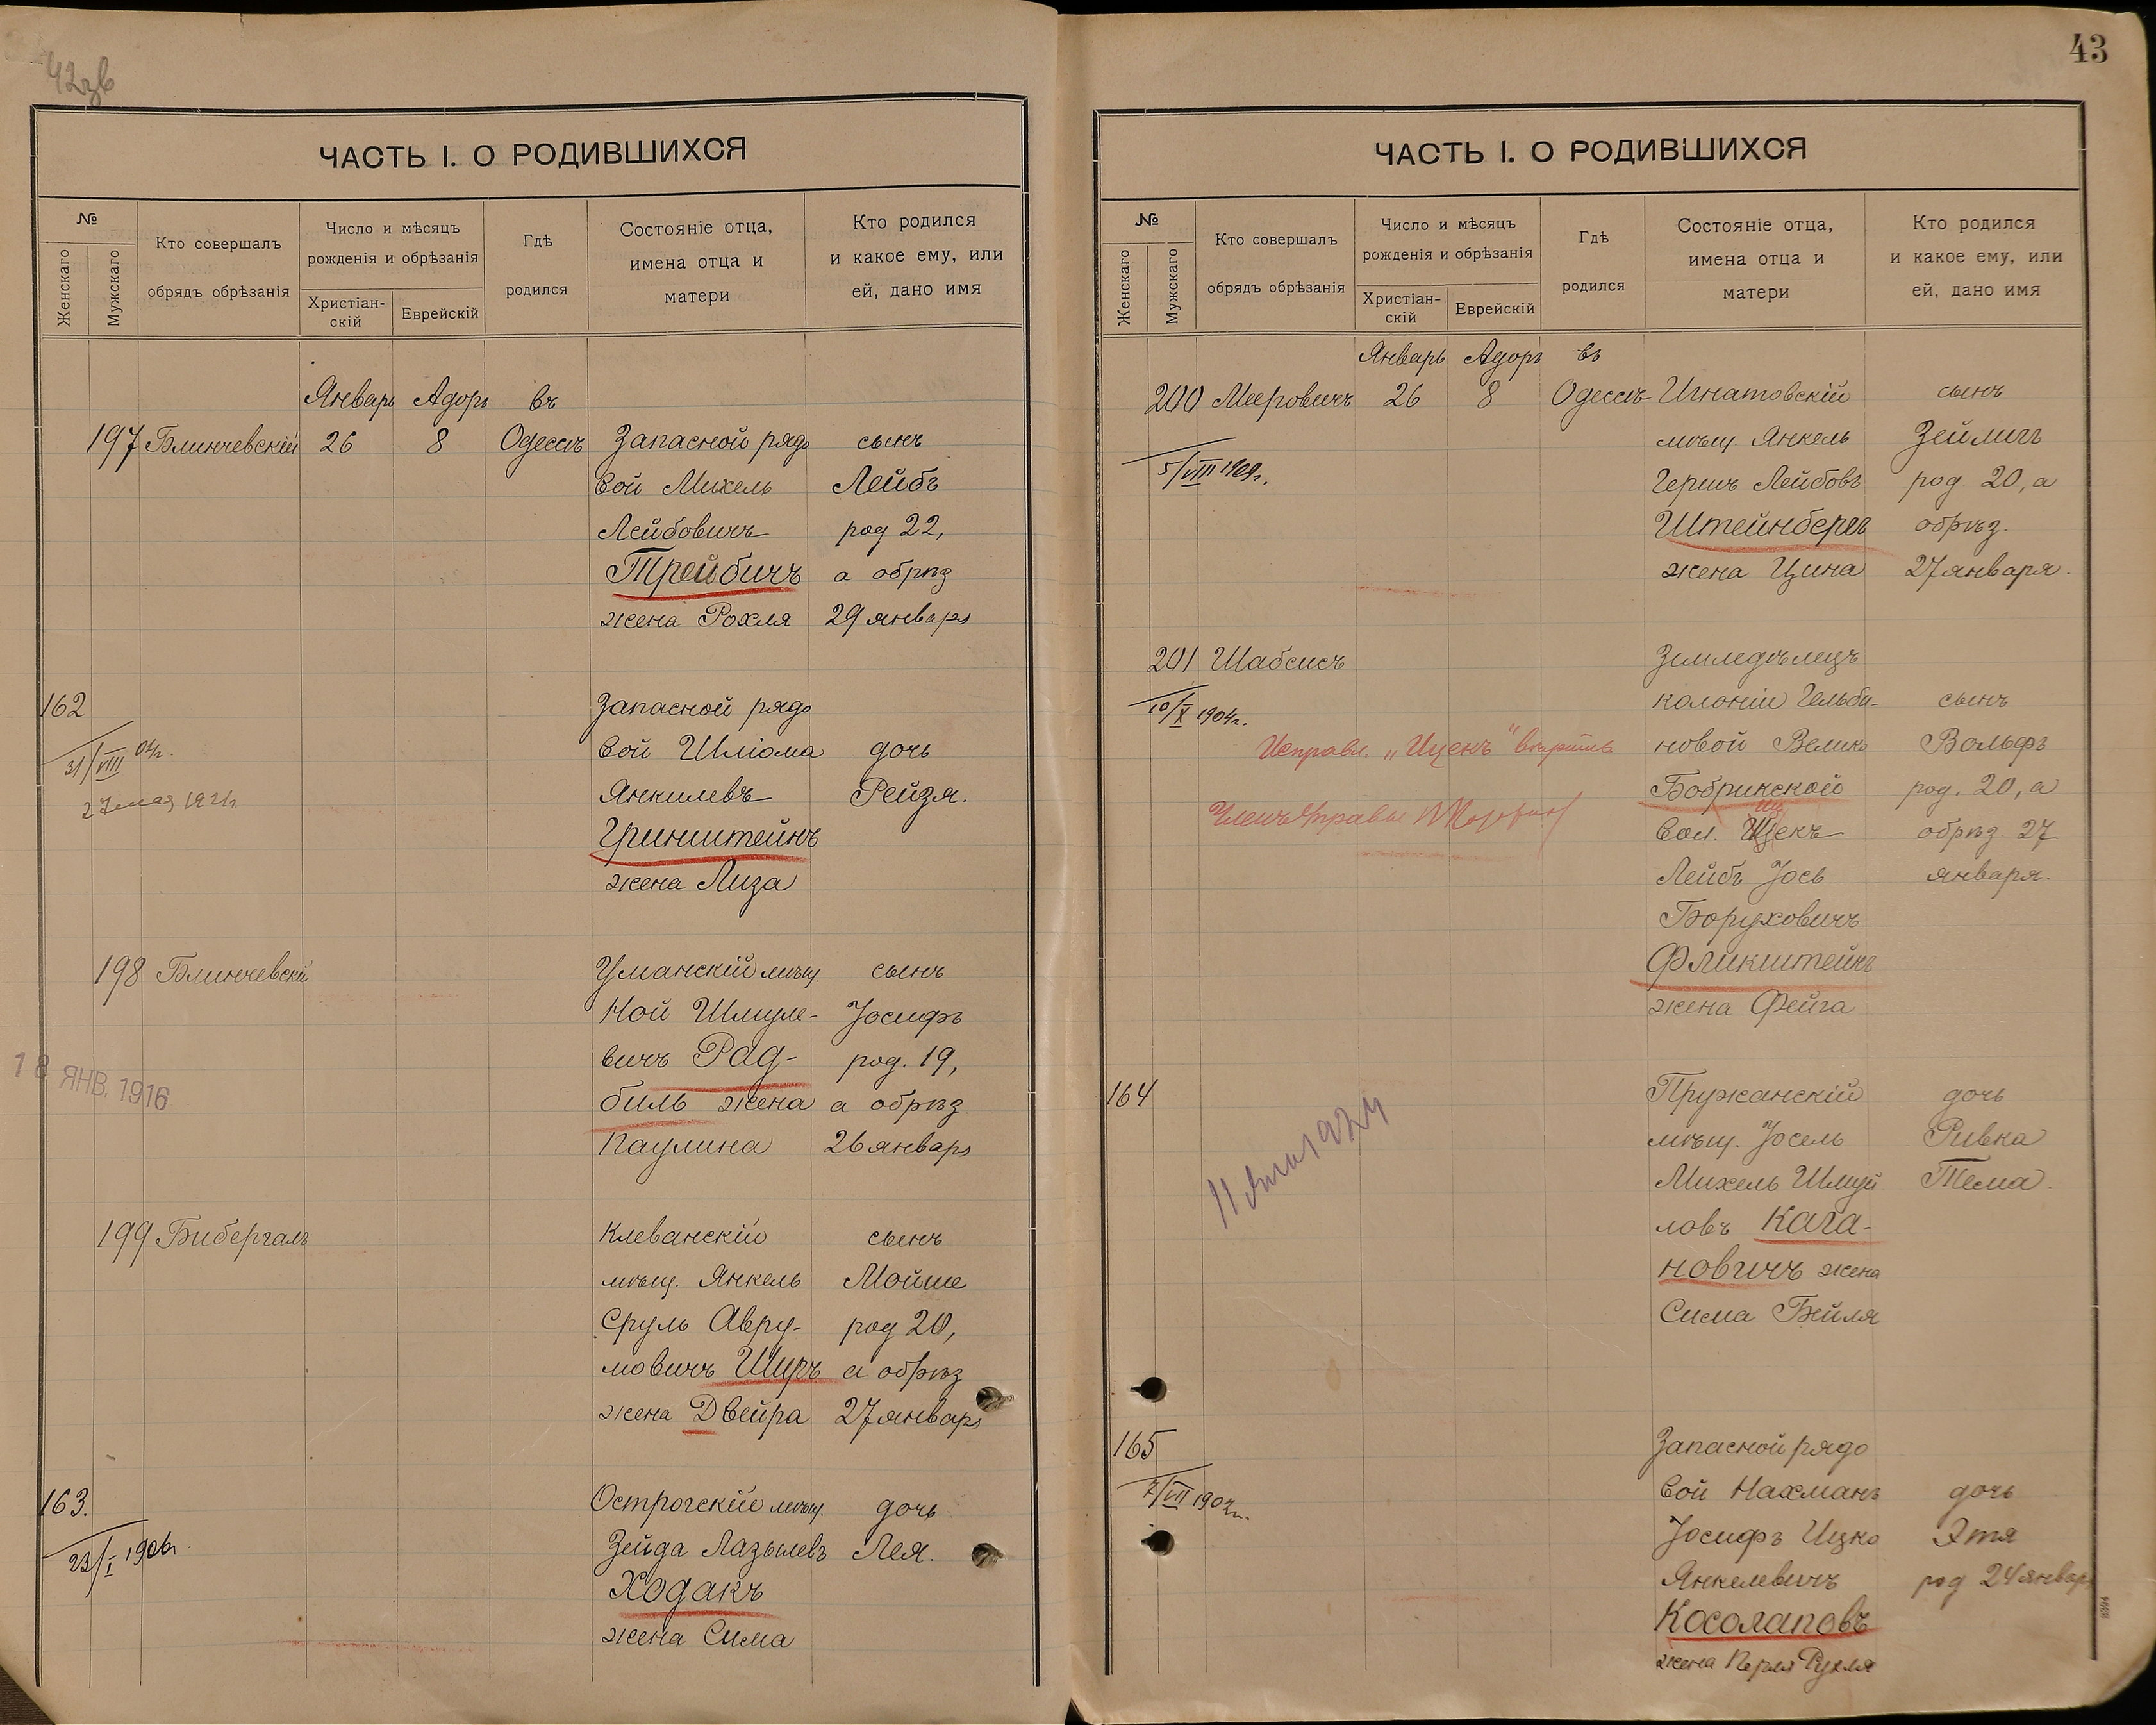 42зв
ЧАСТЬ I. О РОДИВШИХСЯ
№
Женскаго
Мужскаго
Кто совершалъ
обрядъ обрѣзанія
Число и мѣсяцъ
рожденія и обрѣзанія
Христіан-
скій
Еврейскій
Гдѣ
родился
Состояніе отца,
имена отца и
матери
Кто родился
и какое ему, или
ей, дано имя
Январь Адоръ въ
197 Блинчевскій 26 8 Одессѣ Запасной рядо сынъ
вой Михель Лейбъ
Лейбовичъ род 22,
Трейбичъ а обрѣз
жена Рохля 29 января
162 Запасной рядо
31/VIII 04г. вой Шліома дочь
27 мая 1921г Янкилевъ Рейзя.
Гринштейнъ
жена Лиза
198 Блинчевскій Уманскій мѣщ. сынъ
Ной Шмуле- Іосифъ
вичъ Рад- род. 19,
18 ЯНВ. 1916
биль жена а обрѣз
Паулина 26 января
199 Бибергалъ Клеванскій сынъ
мѣщ. Янкель Мойше
Сруль Авру- род 20,
мовичъ Шуръ а обрѣз
жена Двейра 27 января
163. Острогскій мѣщ. дочь
23/I 1906г. Зейда Лазылевъ Лея.
Ходакъ
жена Сима
43
ЧАСТЬ I. О РОДИВШИХСЯ
№
Женскаго
Мужскаго
Кто совершалъ
обрядъ обрѣзанія
Число и мѣсяцъ
рожденія и обрѣзанія
Христіан-
скій
Еврейскій
Гдѣ
родился
Состояніе отца,
имена отца и
матери
Кто родился
и какое ему, или
ей, дано имя
Январь Адоръ въ
200 Мееровичъ 26 8 Одессѣ Игнатовскій сынъ
мѣщ. Янкель Зейлигъ
5/VIII 1909г. Гершъ Лейбовъ род 20, а
Штейнбергъ обрѣз.
жена Цина 27 января.
201 Шабсисъ Земледѣлецъ
10/X 1904г. колоніи Гельби- сынъ
Исправл. „Ицекъ" вѣрить новой Велико Вольфъ
Бобринской род. 20, а
Членъ Управы
вол. Ицекъ обрѣз 27
Лейбъ Іось января.
Боруховичъ
Фликштейнъ
жена Фейга
164 Пружанскій дочь
мѣщ. Іосель Ривка
Михель Шмуй Тема.
11 1924
ловъ Кага-
новичъ жена
Сима Бейля
165 Запасной рядо
7/VII 1904г. вой Нахманъ дочь
Іосифъ Ицко Этя
Янкелевичъ род 24 января
Косолаповъ
жена Перля Рухля